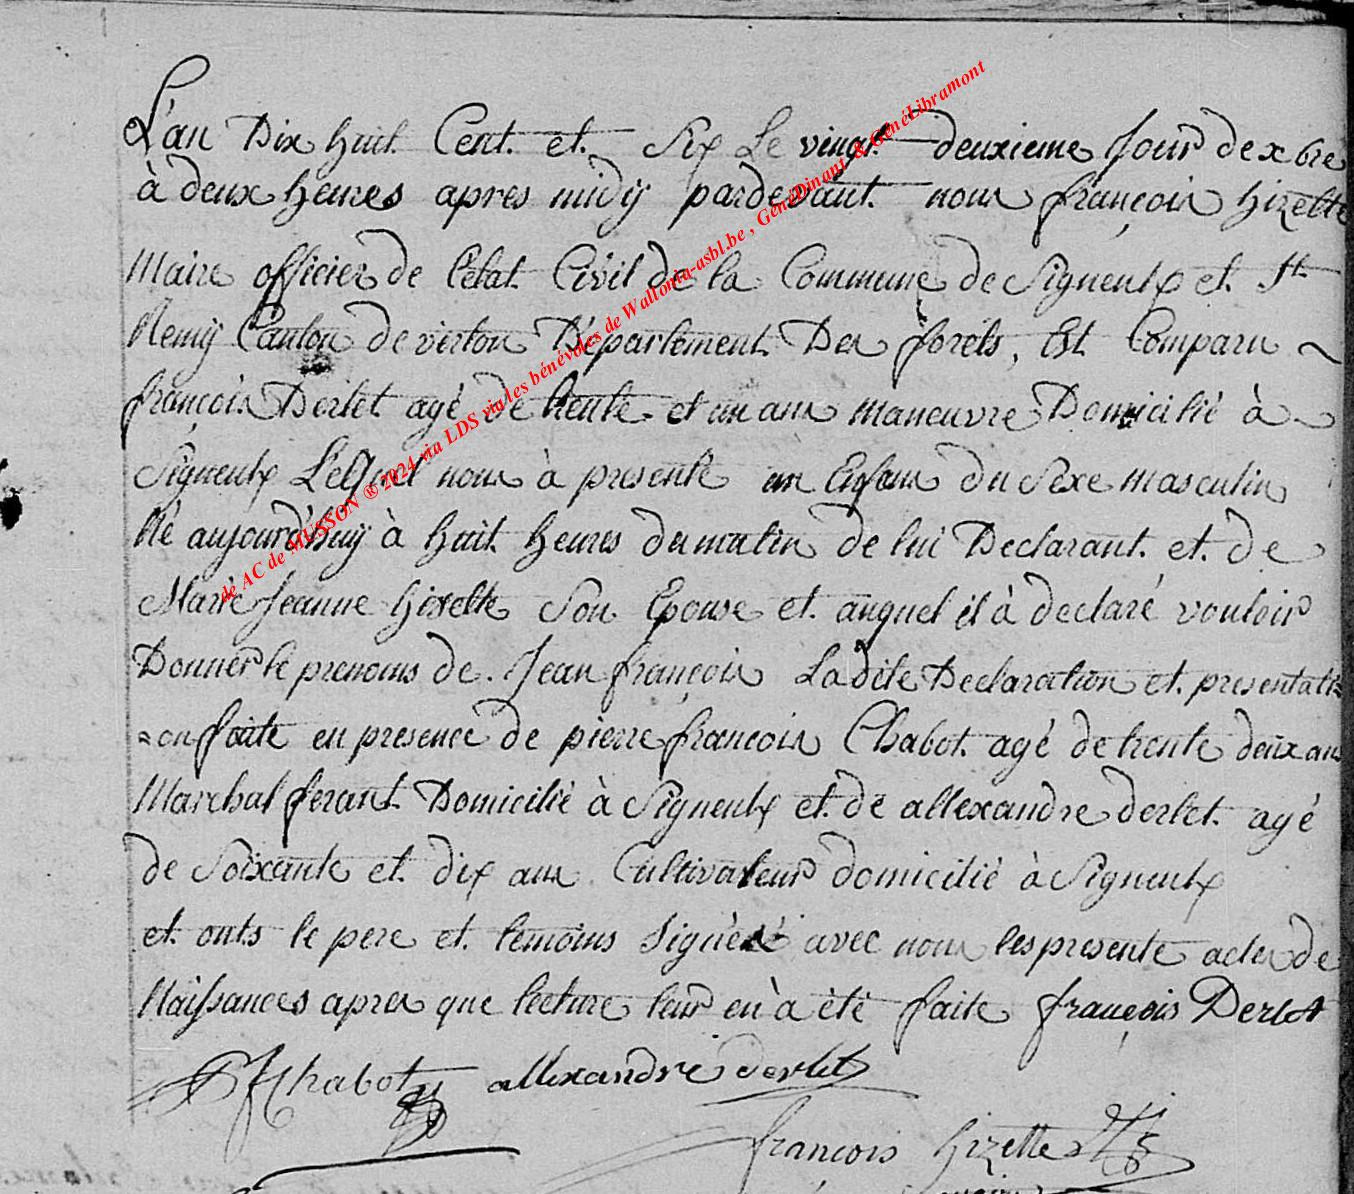 L'an Dix huit Cent et Six Le vingt deuxieme Jour de xbre
à deux heures apres midÿ pardevant nous françois hizette
Maire officier de l'etat Civil de la Commune de Signeulx et St
Remÿ Canton de virton Departement Des forets, Est Comparu
françois Derlet agé de trente et un ans maneuvre Domicilié à
Signeulx LeQuel nous à presenté un Enfans du Sexe masculin
Né aujourd'huÿ à huit heures du matin de lui Declarant et de
Marie Jeanne hizette Son Epouse et auquel il à declaré vouloir
Donner le prenoms de Jean françois Ladite Declaration et presentati=
=on faite en presence de pierre françois Chabot agé de trente deux ans
Marchal ferant Domicilié à Signeulx et de allexandre derlet agé
de Soixante et dix ans Cultivateur domicilié à Signeulx
et onts le pere et temoins signés avec nous les presente actes de
Naissances apres que lecture leur en à été faite françois Derlet
PF Chabot allexandre derlet
françois hizette
de AC de MUSSON ® 2024 via LDS via les bénévoles de Wallonia-asbl.be , GénéDinant & GénéLibramont